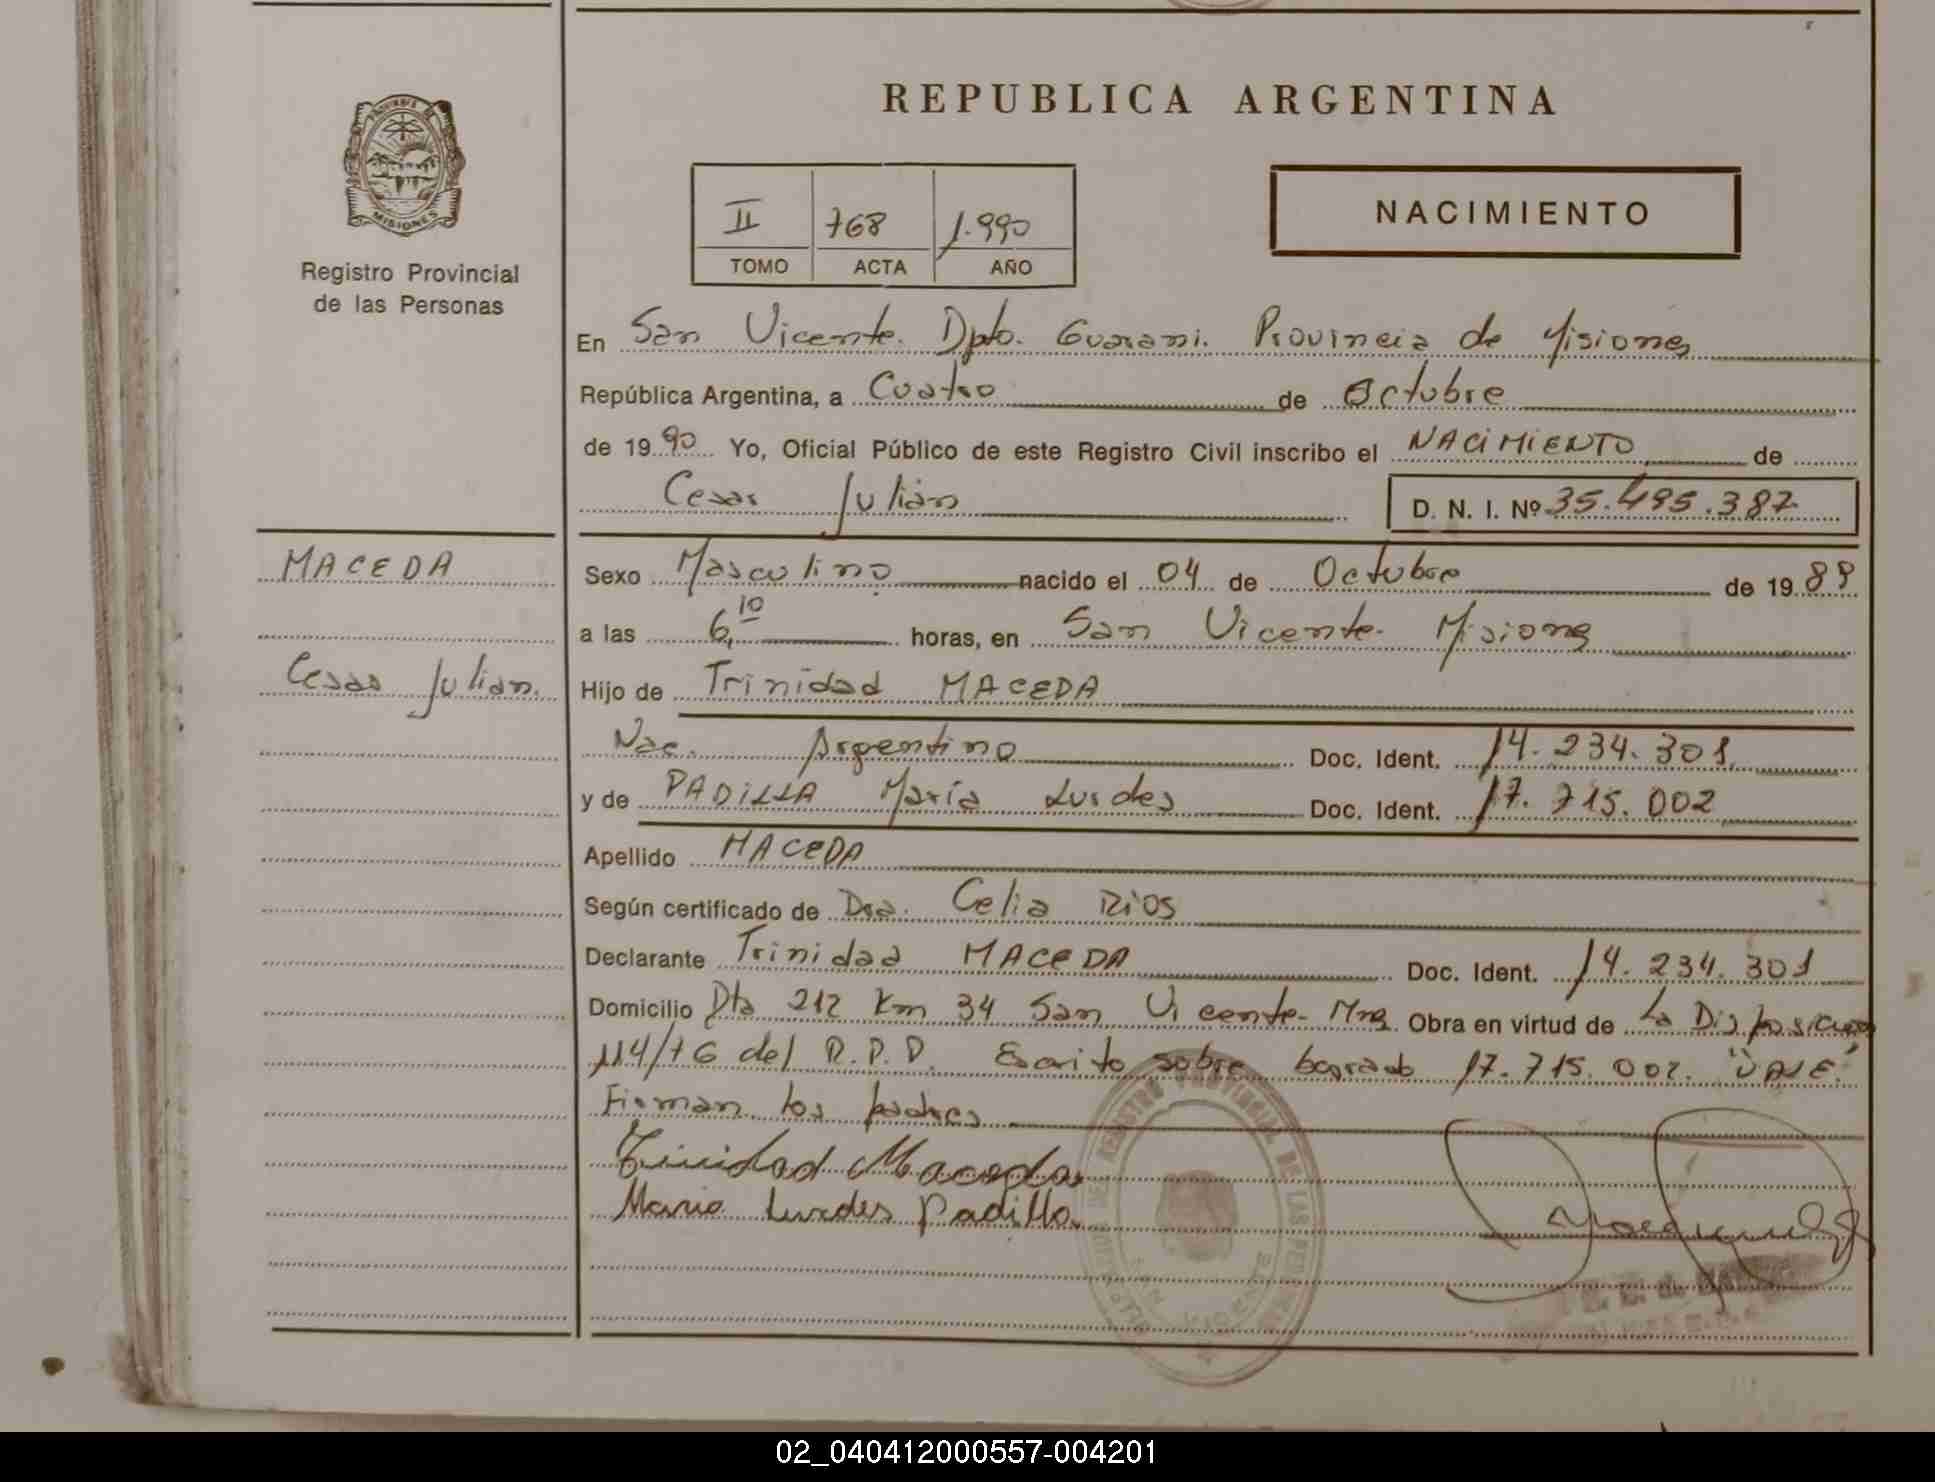 REPUBLICA ARGENTINA
PROVINCIA DE
MISIONES
Registro Provincial
de las Personas
II 768 1.990
TOMO ACTA AÑO
NACIMIENTO
En San Vicente. Dpto. Guarani. Provincia de Misiones
República Argentina, a Cuatro de Octubre
de 1990 Yo, Oficial Público de este Registro Civil inscribo el NACIMIENTO de
Cesar Julián D. N. I. Nº 35.495.387
MACEDA
Cesar Julian.
Sexo Masculino nacido el 04 de Octubre de 1989
a las 6,10 horas, en San Vicente- Misiones
Hijo de Trinidad MACEDA
Nac. Argentino Doc. Ident. 14.234.301
y de PADILLA María Lurdes Doc. Ident. 17.715.002
Apellido MACEDA
Según certificado de Dra. Celia Rios
Declarante Trinidad MACEDA Doc. Ident. 14.234.301
Domicilio Dta 212 Km 34 San Vicente- Mnes Obra en virtud de La Disposicion
114/76 del R.P.P. Escrito sobre borrado 17.715.002. "VALE"
Firman los padres
Trinidad Maceda
Maria Lurdes Padilla
REGISTRO PROVINCIAL DE LAS PERSONAS
SAN VICENTE
02_040412000557-004201